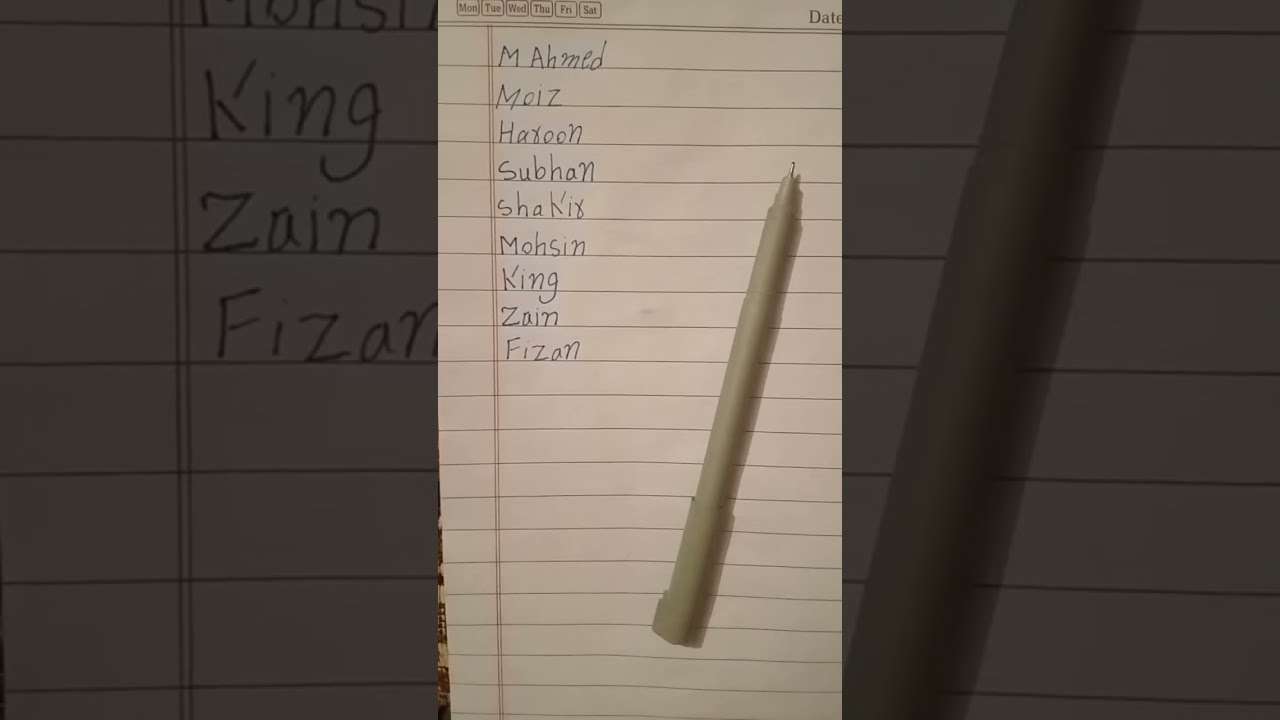 Mon Tue Wed Thu Fri Sat
Date
M Ahmed
Moiz
Haroon
Subhan
Shakir
Mohsin
King
Zain
Fizan